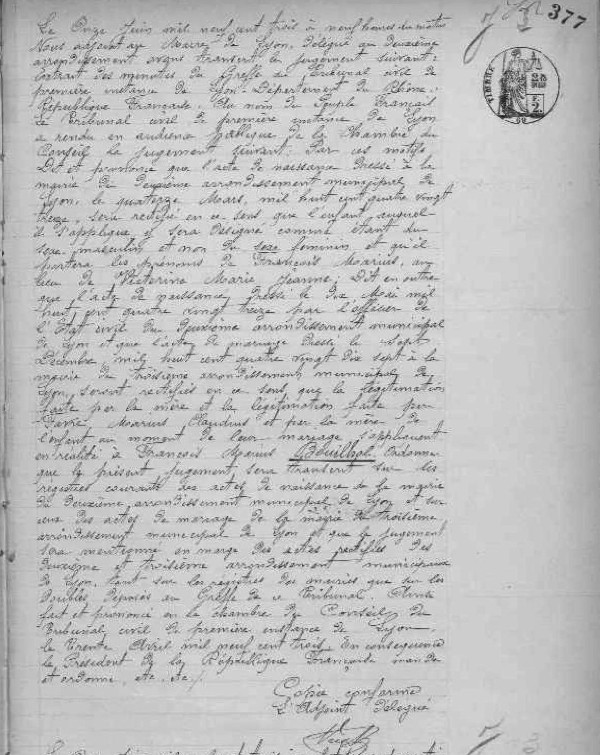 377
Le Onze Juin mil neuf cent trois à neuf heures du matin
Nous adjoint au Maire de Lyon, délégué au deuxième
arrondissement avons transcrit le jugement suivant :
Extrait des minutes du Greffe du Tribunal civil de
première instance de Lyon. Département du Rhône.
République Française. Au nom du Peuple Français
Le Tribunal civil de première instance de Lyon
a rendu en audience publique de la Chambre du
Conseil le jugement suivant : Par ces motifs
Dit et prononce que l'acte de naissance dressé à la
mairie du deuxième arrondissement municipal de
Lyon, le quatorze Mars, mil huit cent quatre vingt
treize, sera rectifié en ce sens que l'enfant auquel
il s'applique y sera désigné comme étant du
sexe masculin et non du sexe féminin et qu'il
portera les prénoms de François Marius, au
lieu de Victorine Marie Jeanne ; Dit en outre
que l'acte de naissance dressé le dix Mai mil
huit cent quatre vingt treize par l'officier de
l'Etat civil du deuxième arrondissement municipal
de Lyon et que l'acte de mariage dressé le sept
Décembre mil huit cent quatre vingt dix sept à la
mairie du troisième arrondissement municipal de
Lyon, seront rectifiés en ce sens que la légitimation
faite par la mère et la légitimation faite par
Favre Marius Claudius et par la mère de
l'enfant au moment de leur mariage s'appliquent
en réalité à François Marius Bouilhol. Ordonne
que le présent jugement sera transcrit sur les
registres courants des actes de naissance de la mairie
du deuxième arrondissement municipal de Lyon et sur
ceux des actes de mariage de la mairie du troisième
arrondissement municipal de Lyon et que le jugement
sera mentionné en marge des actes rectifiés des
deuxième et troisième arrondissements municipaux
de Lyon, tant sur les registres des mairies que sur les
doubles déposés au Greffe de ce Tribunal. Ainsi
fait et prononcé en la chambre du Conseil du
Tribunal civil de première instance de Lyon
le trente Avril mil neuf cent trois. En conséquence
le Président de la République Française mande
et ordonne, etc. etc. /.
Copie conforme
L'Adjoint délégué